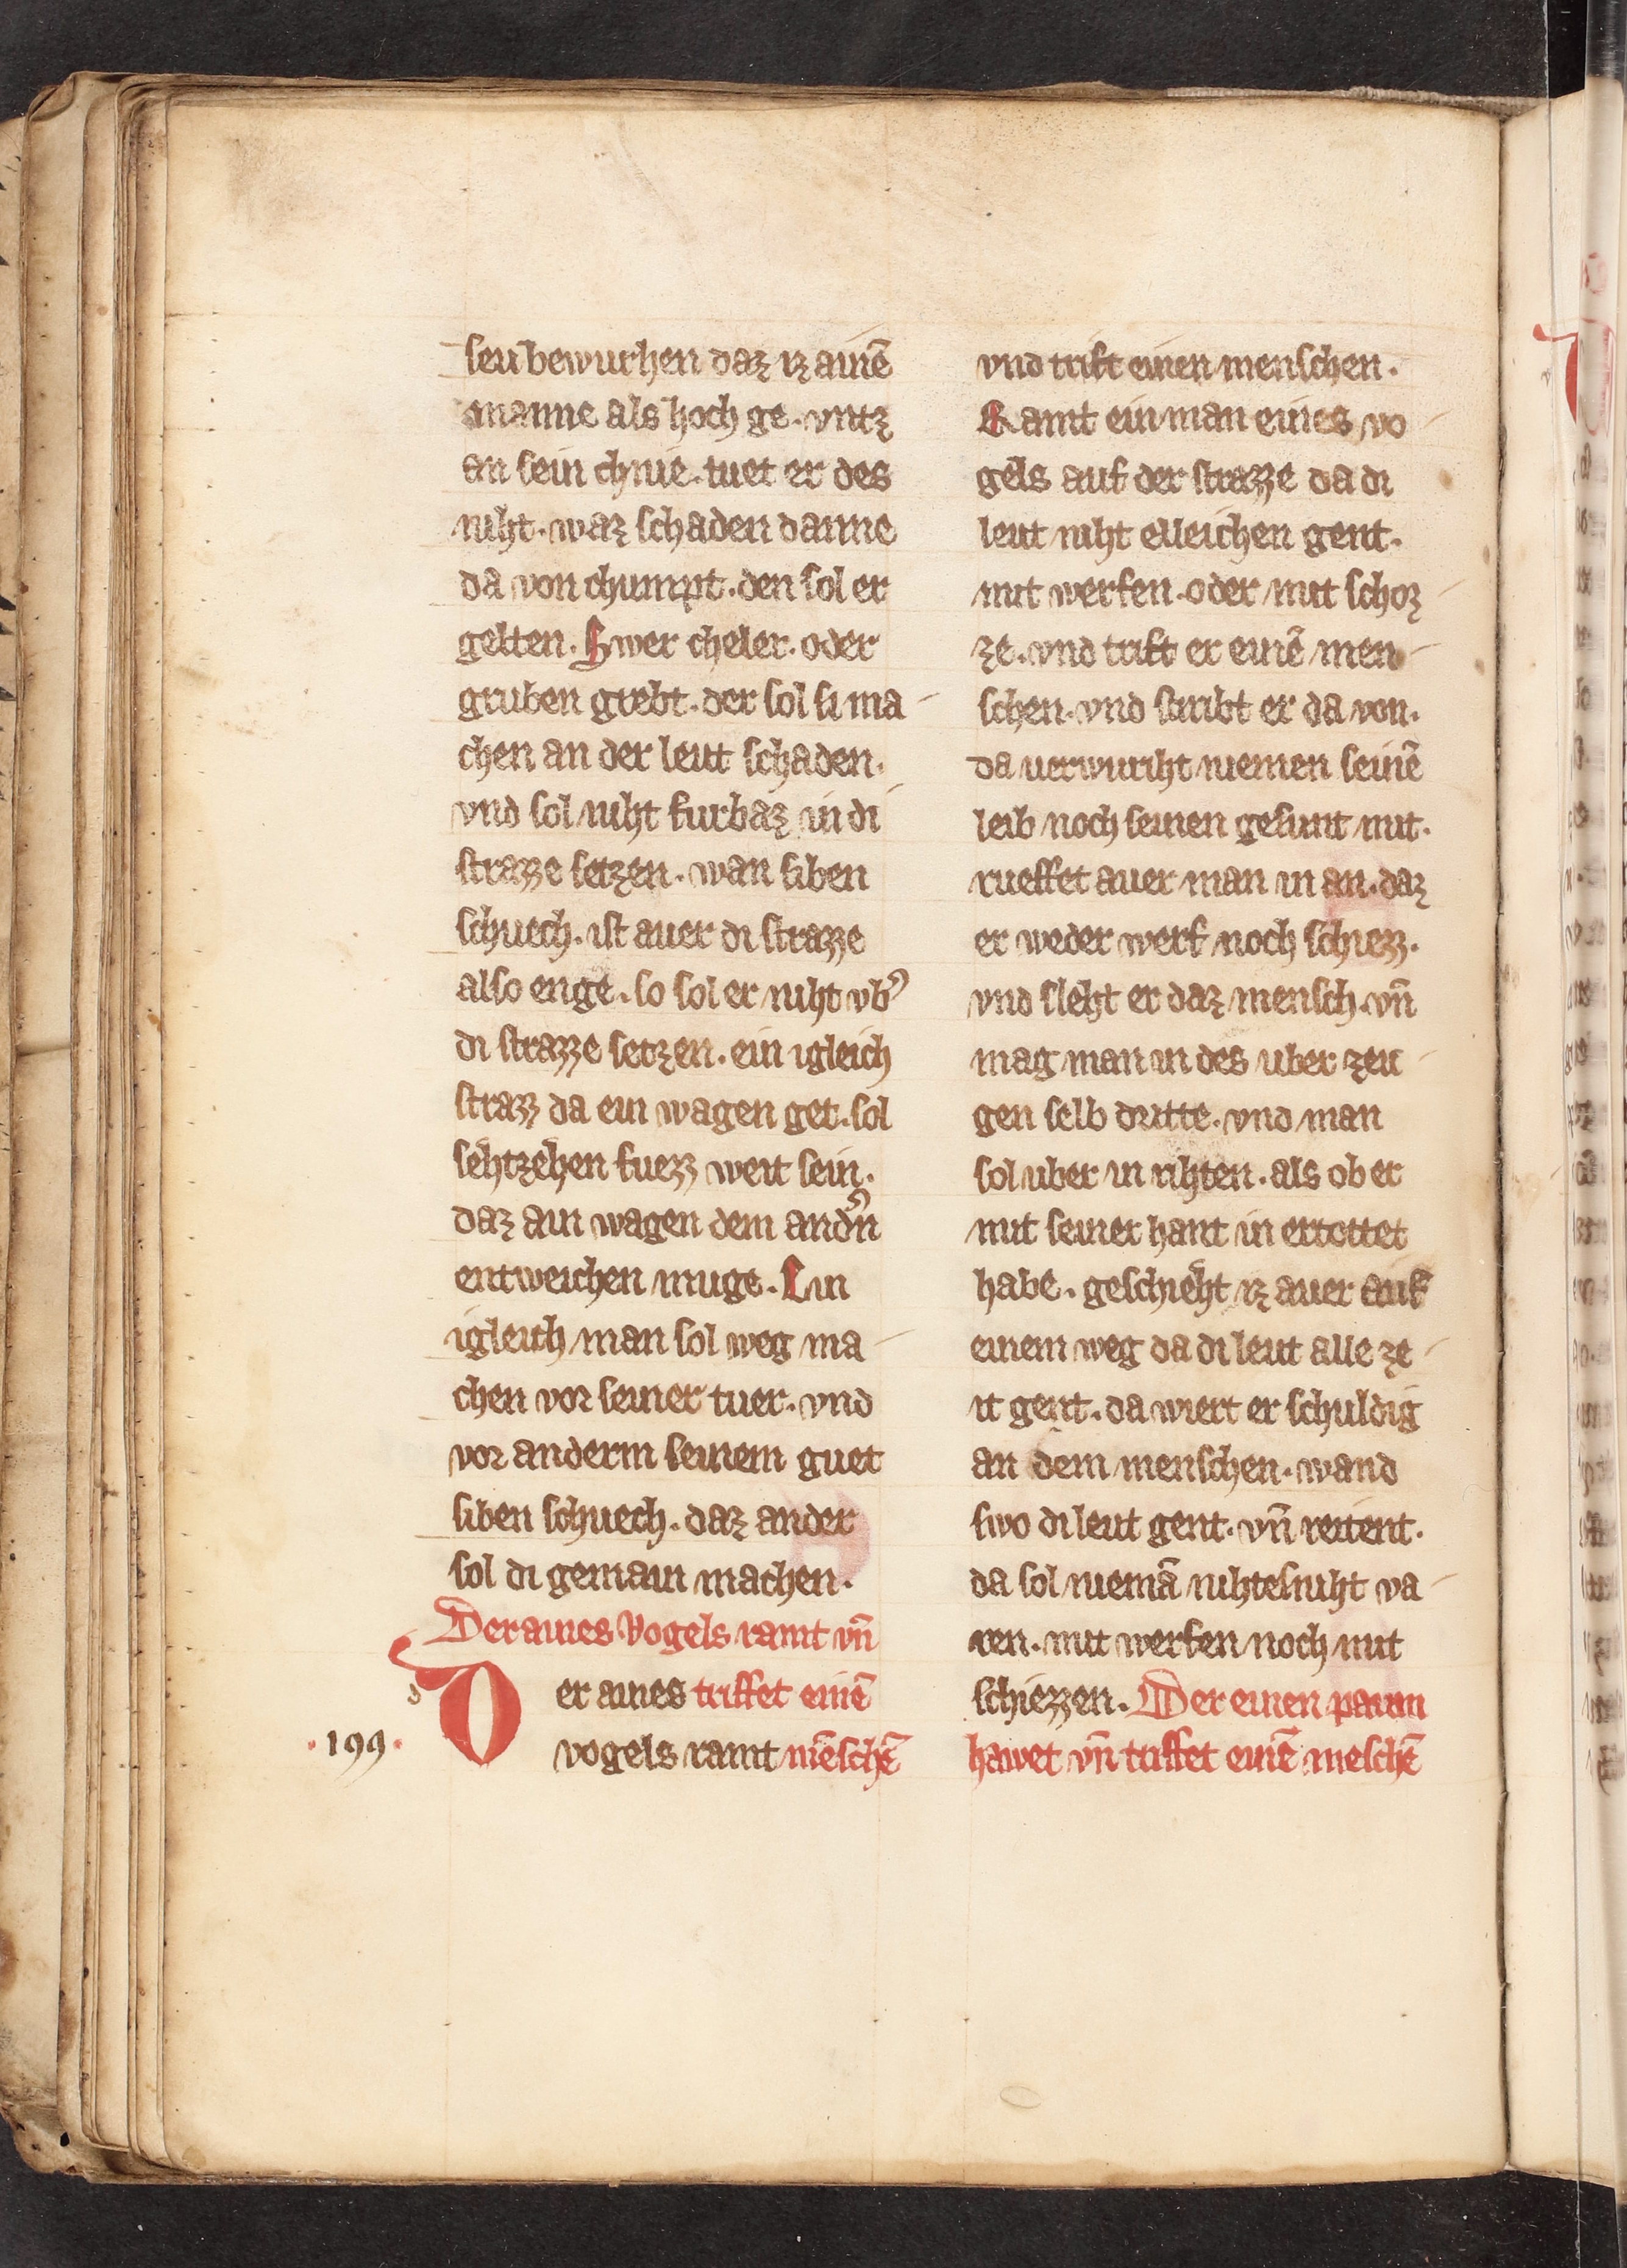 seu bewurhen daz iz ainē
manne als hoch ge. vntz
an sein chnie. tuet er des
niht. waz schaden danne
da von chumpt. den sol er
gelten. Swer cheler. oder
gruben grebt. der sol si ma
chen an der leut schaden.
vnd sol niht furbaz in di
strazze setzen. wan siben
schuech. ist auer di strazze
also enge. so sol er niht vb͛
di strazze setzen. ein igleich
strazz da ein wagen get. sol
sehtzehen fuezz weit sein.
daz ain wagen dem and͛n
entweichen muge. Ein
igleich man sol weg ma
chen vor seiner tuer. vnd
vor anderm seinem guet
siben schuech. daz ander
sol di gemain machen.
Der aines Vogels ramt vn̄
Der aines triffet einē
vogels ramt mēschē
.199.
vnd trift einen menschen.
Ramt ein man eines vo
gels auf der strazze da di
leut niht elleichen gent.
mit werfen. oder mit schoz
ze. vnd trift er einē men
schen. vnd stiribt er da von.
da uerwuriht niemen seinē
leib noch seinen gesunt mit.
rueffet auer man in an. daz
er weder werf noch schiezz.
vnd sleht er daz mensch. vn̄
mag man in des uber zeu
gen selb dritte. vnd man
sol uber in rihten. als ob er
mit seiner hant in ertottet
habe. geschieht iz auer auf
einem weg da di leut alle ze
it gent. da wiert er schuldig
an dem menschen. wand
swo di leut gent. vn̄ reitent.
da sol niemā nihtesniht va
ren. mit werfen noch mit
schiezzen. Der einen paum
hawet vn̄ triffet einē meschē